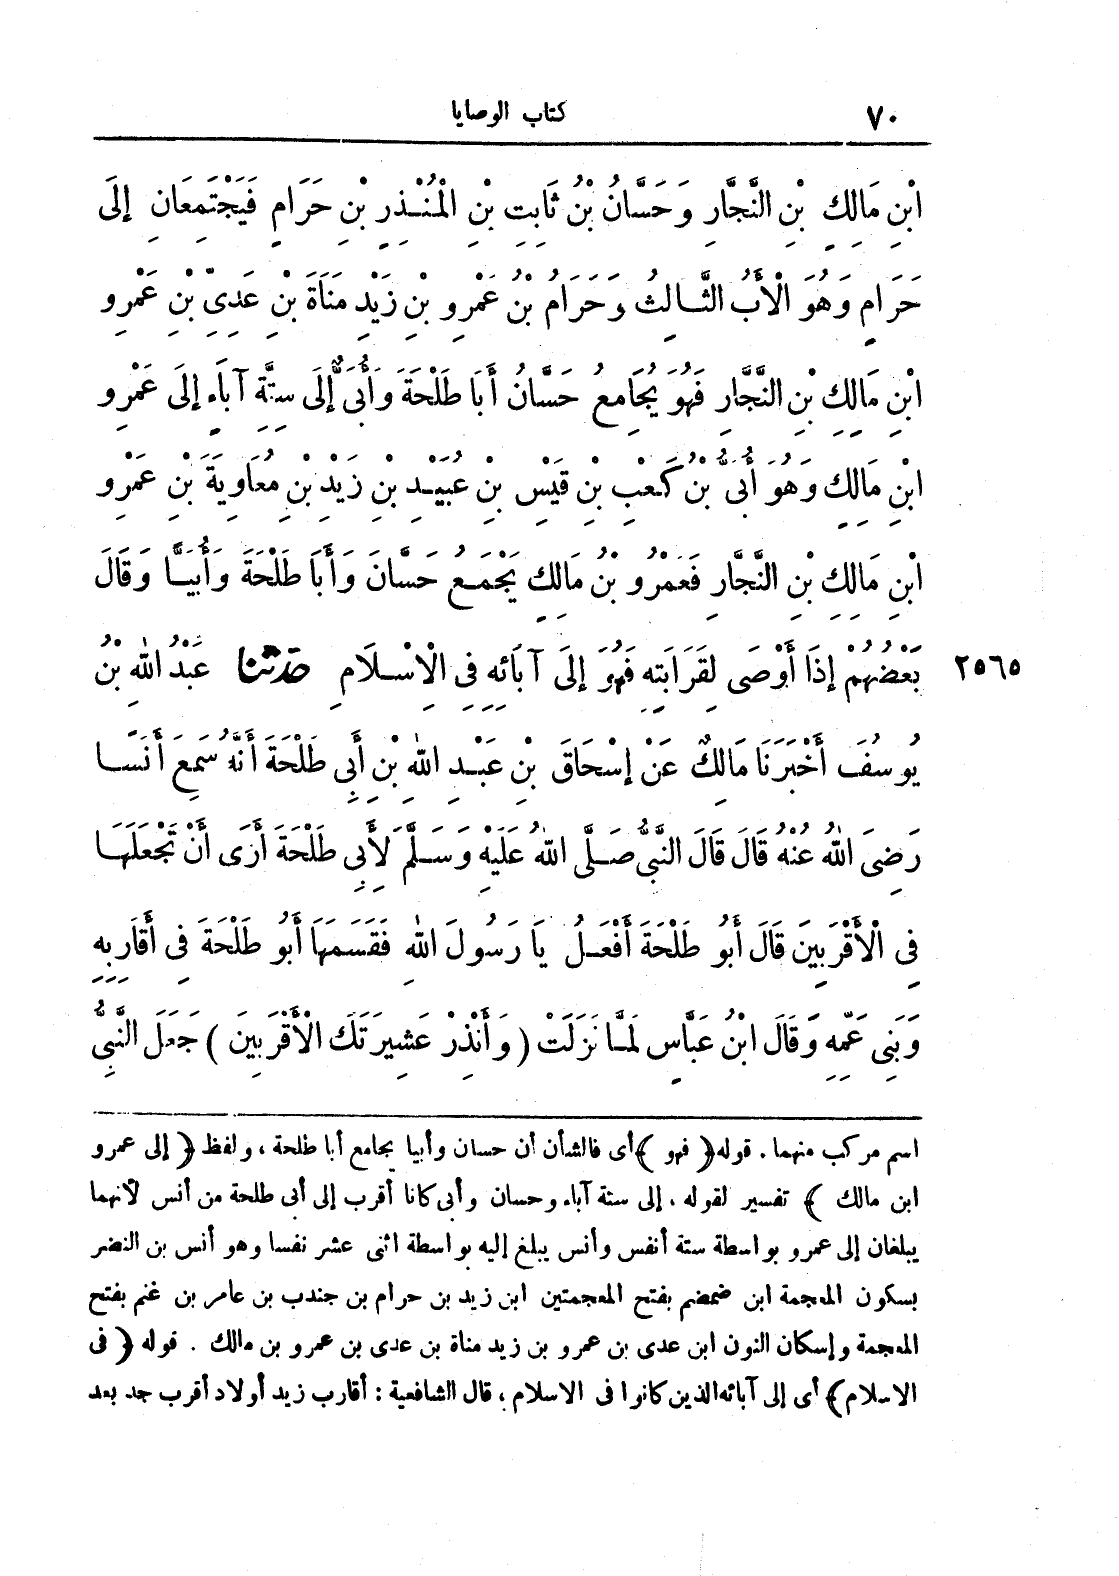 ٧٠ كتاب الوصايا
ابْنِ مَالِكِ بْنِ النَّجَّارِ وَحَسَّانُ بْنُ ثَابِتِ بْنِ الْمُنْذِرِ بْنِ حَرَامٍ فَيَجْتَمِعَانِ إِلَى
حَرَامٍ وَهُوَ الْأَبُ الثَّالِثُ وَحَرَامُ بْنُ عَمْرِو بْنِ زَيْدِ مَنَاةَ بْنِ عَدِيِّ بْنِ عَمْرِو
ابْنِ مَالِكِ بْنِ النَّجَّارِ فَهُوَ يُجَامِعُ حَسَّانُ أَبَا طَلْحَةَ وَأُبَيٌّ إِلَى سِتَّةِ آبَاءٍ إِلَى عَمْرِو
ابْنِ مَالِكٍ وَهُوَ أُبَيُّ بْنُ كَعْبِ بْنِ قَيْسِ بْنِ عُبَيْدِ بْنِ زَيْدِ بْنِ مُعَاوِيَةَ بْنِ عَمْرِو
ابْنِ مَالِكِ بْنِ النَّجَّارِ فَعَمْرُو بْنُ مَالِكٍ يَجْمَعُ حَسَّانَ وَأَبَا طَلْحَةَ وَأُبَيًّا وَقَالَ
٢٥٦٥ بَعْضُهُمْ إِذَا أَوْصَى لِقَرَابَتِهِ فَهُوَ إِلَى آبَائِهِ فِي الْإِسْلَامِ حدثنا عَبْدُ اللهِ بْنُ
يُوسُفَ أَخْبَرَنَا مَالِكٌ عَنْ إِسْحَاقَ بْنِ عَبْدِ اللهِ بْنِ أَبِي طَلْحَةَ أَنَّهُ سَمِعَ أَنَسًا
رَضِيَ اللهُ عَنْهُ قَالَ قَالَ النَّبِيُّ صَلَّى اللهُ عَلَيْهِ وَسَلَّمَ لِأَبِي طَلْحَةَ أَرَى أَنْ تَجْعَلَهَا
فِي الْأَقْرَبِينَ قَالَ أَبُو طَلْحَةَ أَفْعَلُ يَا رَسُولَ اللهِ فَقَسَمَهَا أَبُو طَلْحَةَ فِي أَقَارِبِهِ
وَبَنِي عَمِّهِ وَقَالَ ابْنُ عَبَّاسٍ لَمَّا نَزَلَتْ (وَأَنْذِرْ عَشِيرَتَكَ الْأَقْرَبِينَ) جَعَلَ النَّبِيُّ
اسم مركب منهما. قوله ﴿فهو﴾ أى فالشأن أن حسان وأبيا يجامع أبا طلحة، ولفظ ﴿إلى عمرو
ابن مالك﴾ تفسير لقوله، إلى ستة آباء وحسان وأبى كانا أقرب إلى أبى طلحة من أنس لأنهما
يبلغان إلى عمرو بواسطة ستة أنفس وأنس يبلغ إليه بواسطة اثنى عشر نفسا وهو أنس بن النضر
بسكون المعجمة ابن ضمضم بفتح المعجمتين ابن زيد بن حرام بن جندب بن عامر بن غنم بفتح
المعجمة وإسكان النون ابن عدى بن عمرو بن زيد مناة بن عدى بن عمرو بن مالك. قوله ﴿فى
الاسلام﴾ أى إلى آبائه الذين كانوا فى الاسلام، قال الشافعية: أقارب زيد أولاد أقرب جد بعد